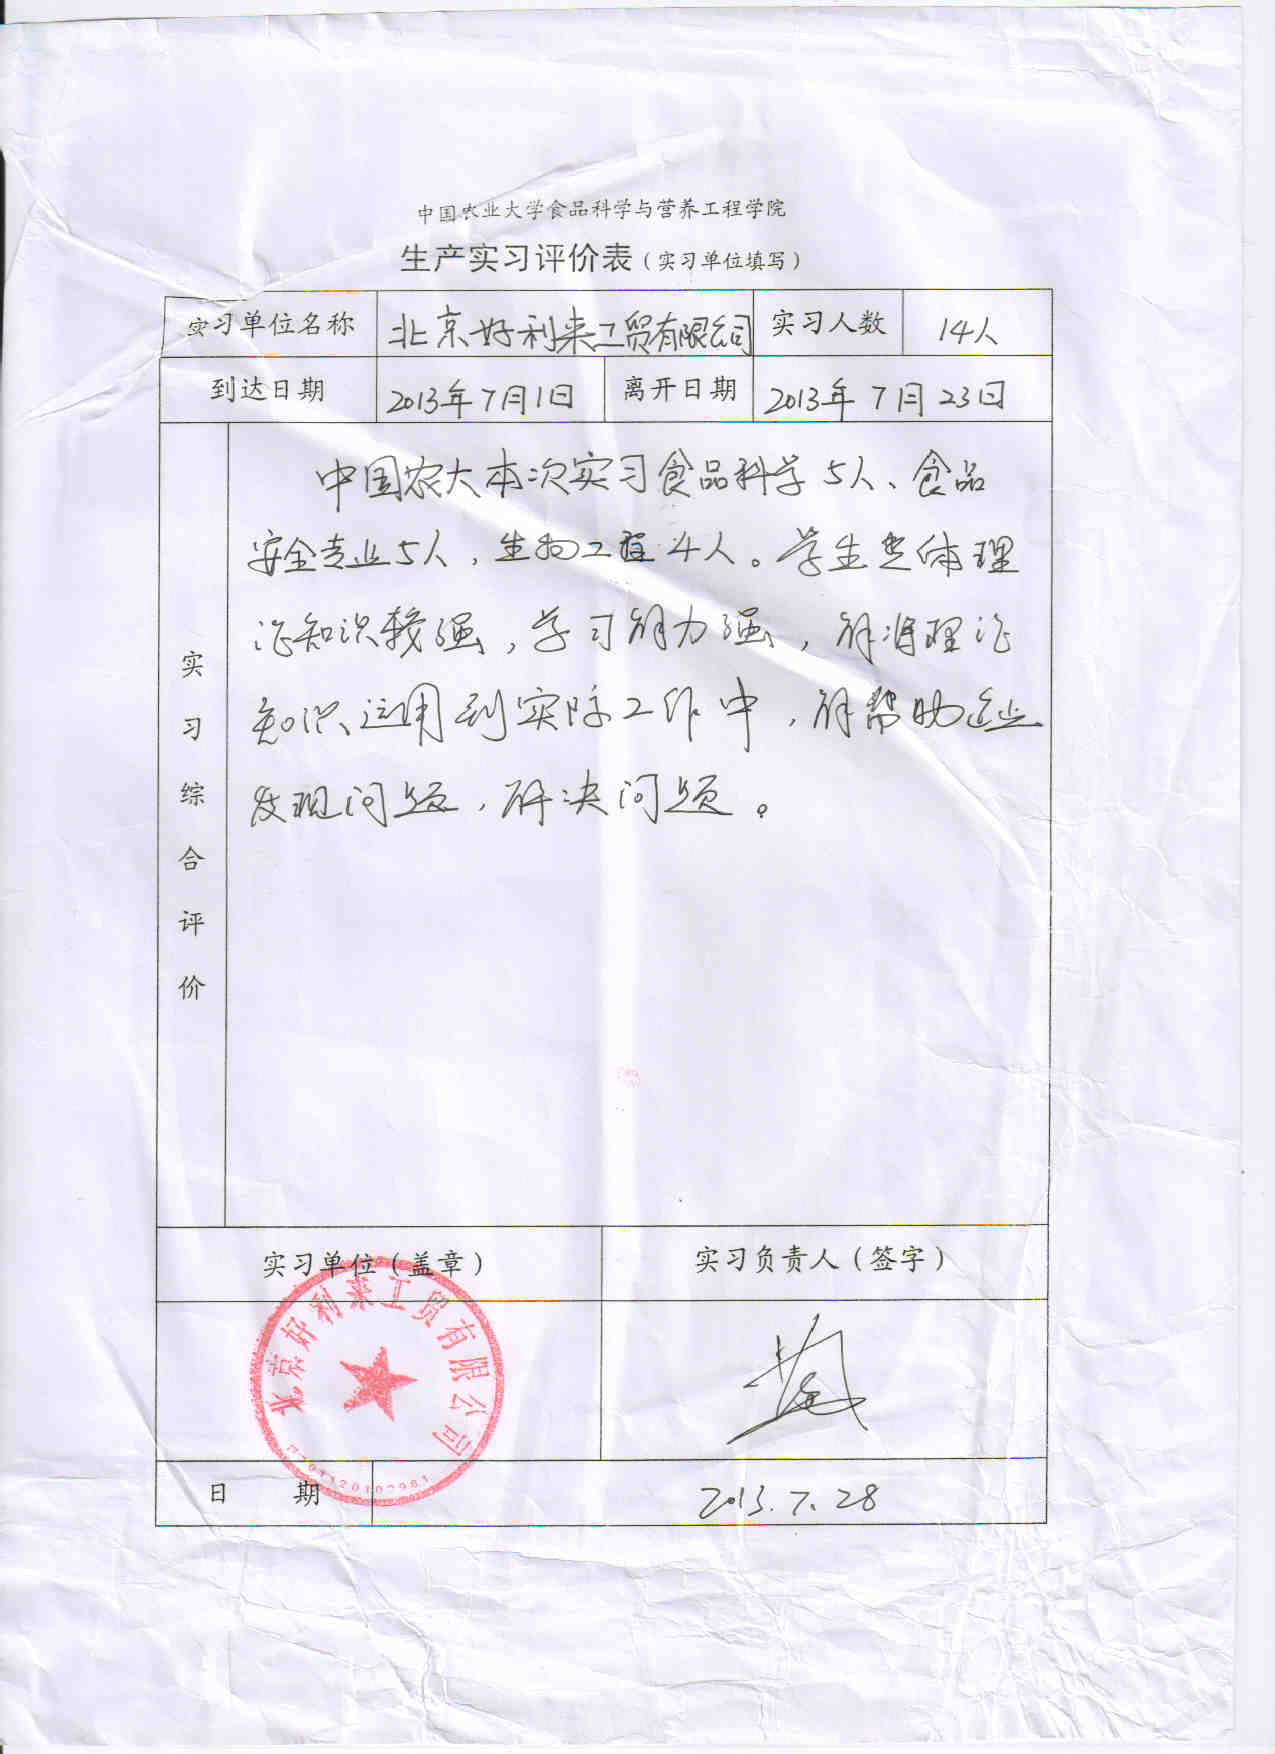 中国农业大学食品科学与营养工程学院
生产实习评价表（实习单位填写）
实习单位名称 北京好利来工贸有限公司 实习人数 14人
到达日期 2013年7月1日 离开日期 2013年7月23日
实习综合评价
中国农大本次实习食品科学5人、食品
安全专业5人，生物工程4人。学生总体理
论知识较强，学习能力强，能将理论
知识运用到实际工作中，能帮助企业
发现问题，解决问题。
实习单位（盖章） 实习负责人（签字）
北京好利来工贸有限公司
日期 2013.7.28